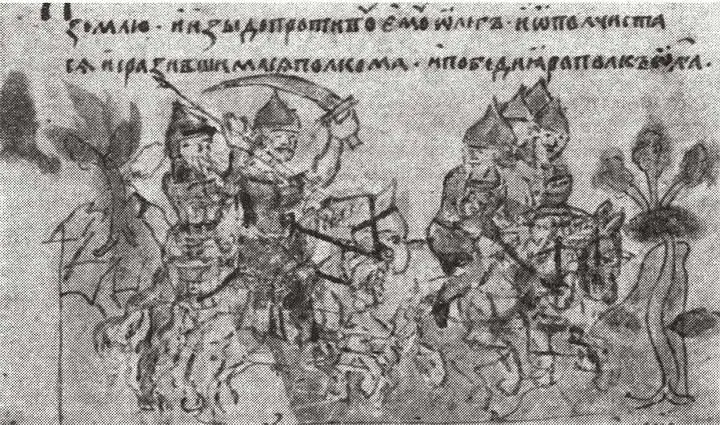 землю · и изыде противꙋ ємоу ѡлегъ · и ѡполчиста
сѧ и сразившимасѧ полкома · и победи ꙗрополкъ ѡлга ·